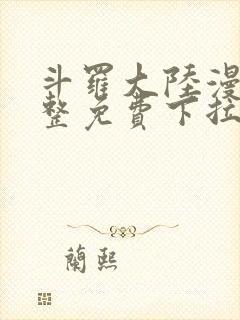 斗羅大陸漫
整免費下拉
蘭熙